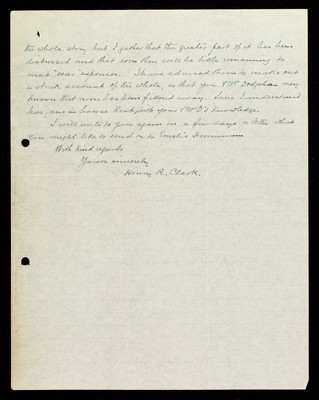 the whole story but I gather that the greater part of it has been
disbursed and that soon there will be little remaining to
meet expenses. I have advised them to make out
a strict account of the whole, so that you & Mr Dodghan may
know that none has been frittered away. Some I understand
has gone in house Rent with your & Mr D's knowledge.
I will write to you again in a few days a letter that
you might like to send on to
With kind regards
Yours sincerely
Henry R. Clark.